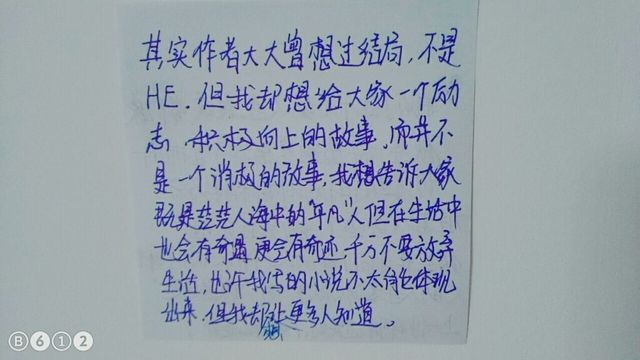 其实作者大大曾想过结局，不是
HE．但我却想给大家一个励
志、积极向上的故事，而并不
是一个消极的故事，我想告诉大家
既是茫茫人海中的"平凡"人但在生活中
也会有奇遇，更会有奇迹，千万不要放弃
生活，也许我写的小说不太能体现
出来，但我却想让更多人知道。
B612